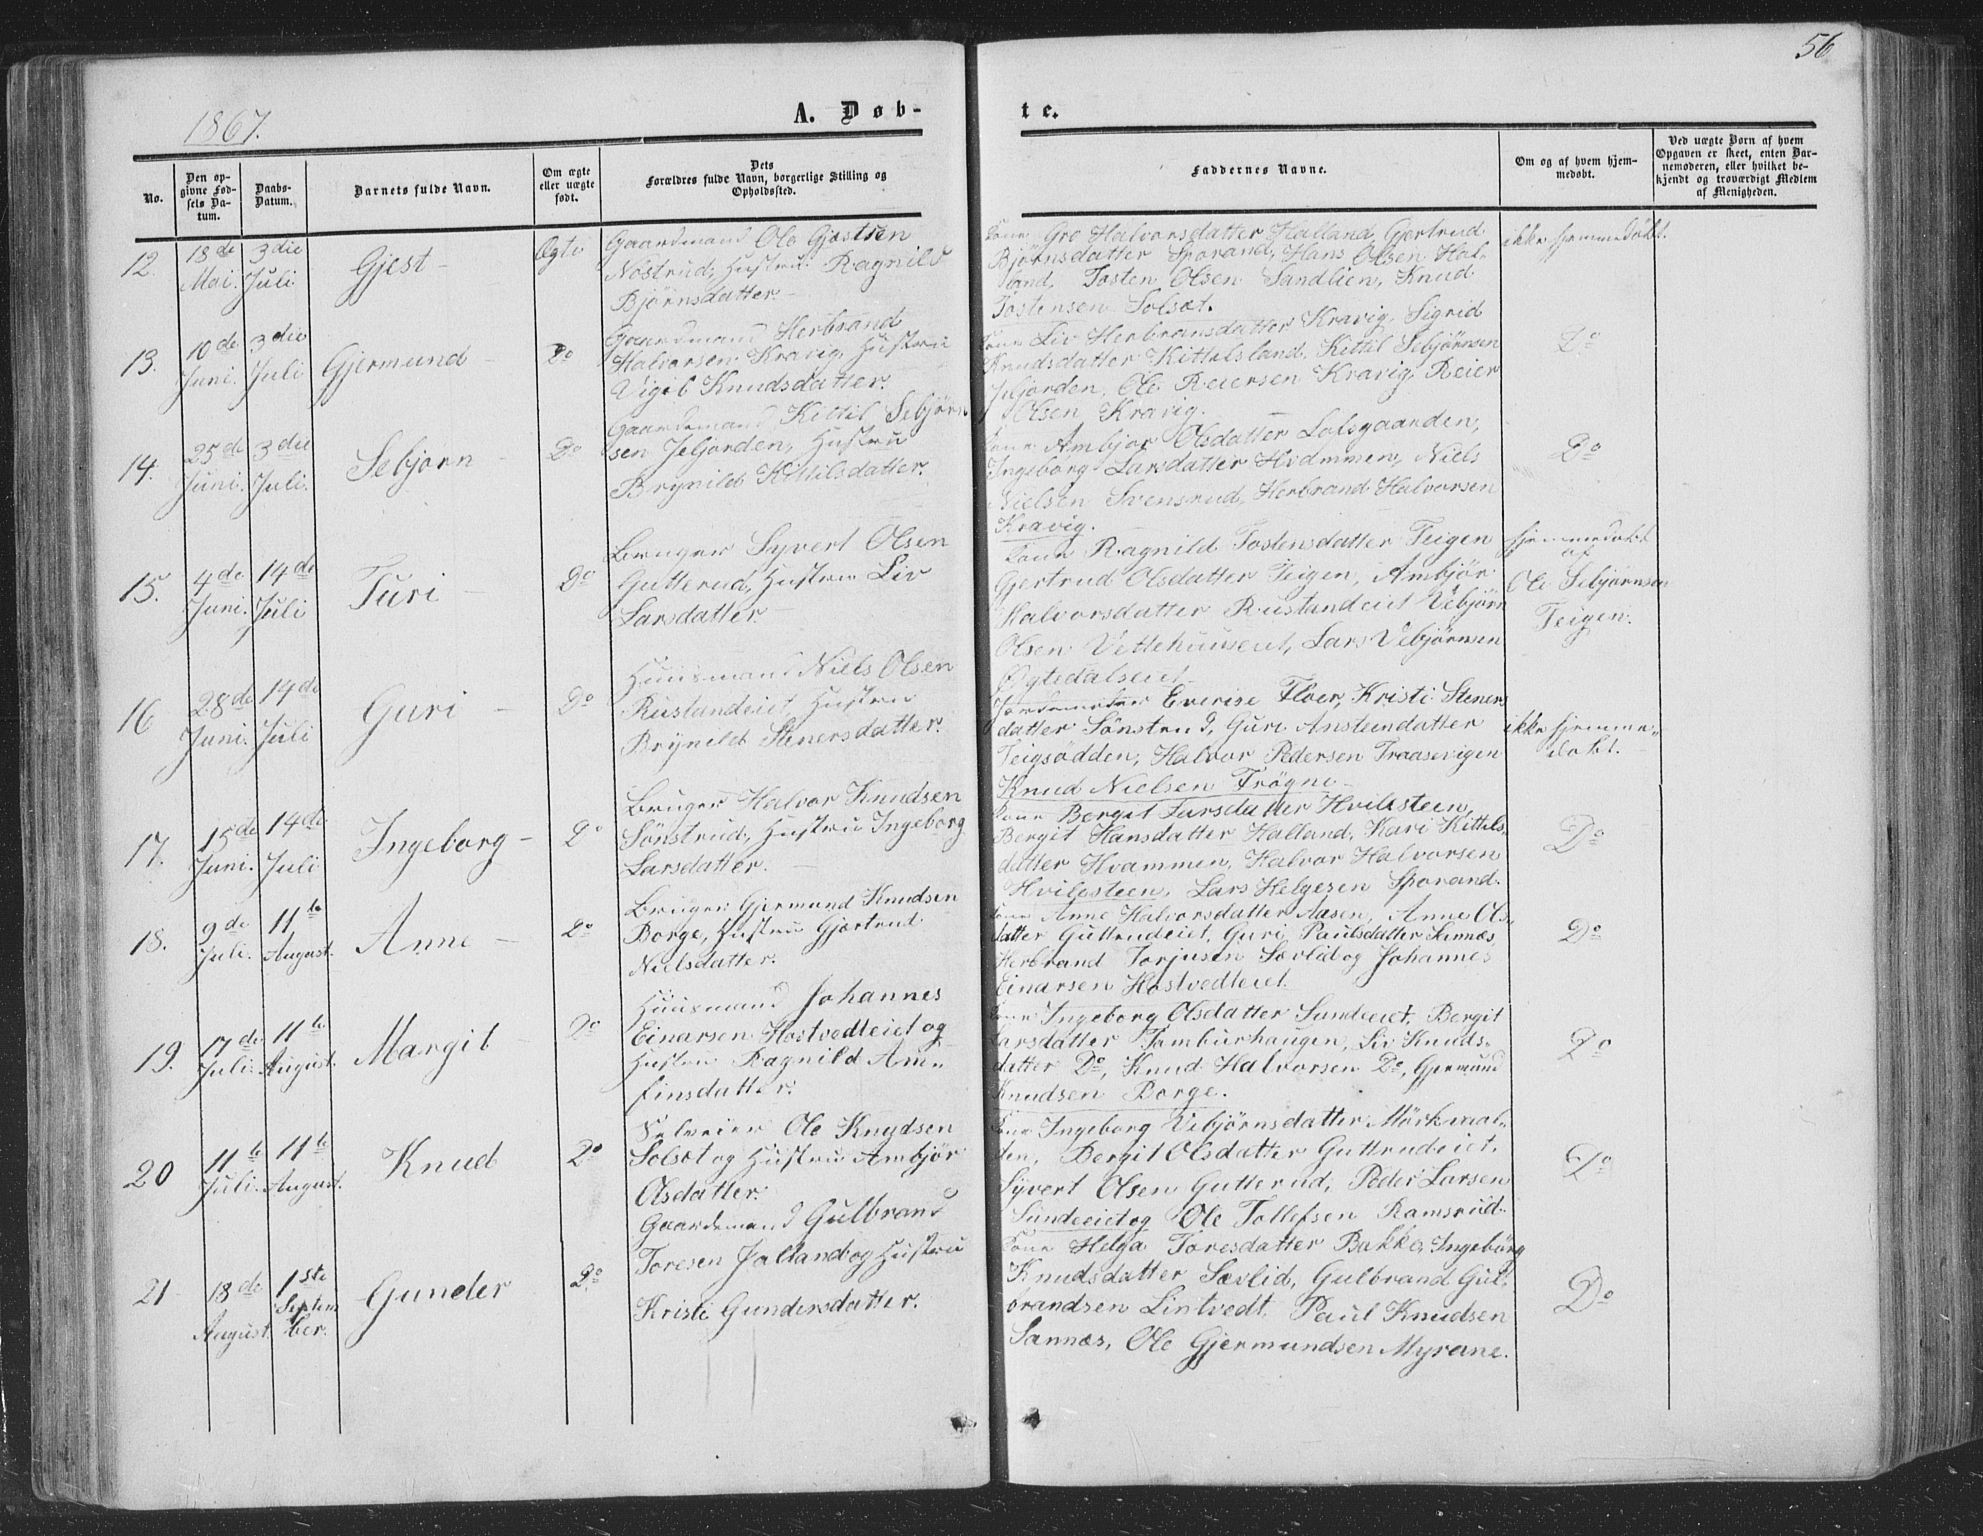 56
1867.
A. Døb-
te.
No.
Den op-
givne Fød-
sels Da-
tum.
Daabs-
Datum.
Barnets fulde Navn.
Om ægte
eller uægte
født.
Dets
Forældres fulde Navn, borgerlige Stilling og
Opholdssted.
Faddernes Navne.
Om og af hvem hjem-
medøbt.
Ved uægte Børn af hvem
Opgaven er skeet, enten Bar-
nemoderen, eller hvilket be-
kjendt og troværdigt Medlem
af Menigheden.
12.
18de
Mai.
3die
Juli
Gjest
Ægte
Gaardmand Ole Gjestsen
Nostrud, Hustru Ragnild
Bjørnsdatter.
Kone Gro Halvorsdatter Halland, Gjertrud
Bjørnsdatter Sporand, Hans Olsen Hal-
land, Tosten Olsen Sandlien, Knud
Tostensen Solsæt.
ikke hjemmedøbt.
13.
10de
Juni.
3die
Juli
Gjermund
Do
Gaardmand Herbrand
Halvorsen Kravig, Hustru
Vigeb Knudsdatter.
Kone Liv Herbransdatter Kravig, Sigrid
Knudsdatter Kittelsland, Kittil Sebjørnsen
Jeljorden, Ole Reiersen Kravig, Reier
Olsen Kravig.
Do
14.
25de
Juni.
3die
Juli.
Sebjørn
Do
Gaardemand Kittil Sebjørn
sen Jeljorden, Hustru
Brynild Kittilsdatter.
Kone Ambjør Olsdatter Lolsgaarden,
Ingeborg Larsdatter Hvammen, Niels
Nielsen Svensrud, Herbrand Halvorsen
Kravig.
Do
15.
4de
Juni.
14de
Juli
Turi
Do
Bruger Syvert Olsen
Gutterud, Hustru Liv
Larsdatter.
Kone Ragnild Tostensdatter Teigen
Gjertrud Olsdatter Teigen, Ambjør
Halvorsdatter Rustandeiet Vebjørn
Olsen Vettehuuseiet, Lars Vebjørnsen
Øgtedalseiet
hjemmedøbt
af
Ole Sebjørnsen
Teigen.
16
28de
Juni.
14de
Juli
Guri
Do
Huusmand Niels Olsen
Rustandeiet Hustru
Brynild Stenersdatter.
Jordemoder Everise Floer, Kristi Steners
datter Sønstrud, Guri Ansteindatter
Teigsødden, Halvor Pedersen Traasevigen
Knud Nielsen Frøgne
ikke hjemme-
døbt.
17.
15de
Juni.
14de
Juli
Ingeborg
Do
Bruger Halvor Knudsen
Sønstrud, Hustru Ingeborg
Larsdatter.
Kone Bergit Larsdatter Hvilesteen
Bergit Hansdatter Halland, Kari Kittels,
datter Hvammen, Halvor Halvorsen
Hvilesteen, Lars Helgesen Sporand.
Do
18.
9de
Juli.
11te
August.
Anne
Do
Bruger Gjermund Knudsen
Borge, Hustru Gjertrud
Nielsdatter.
Kone Anne Halvorsdatter Aasen, Anne Ols,
datter Guttrudeiet, Guri Paulsdatter Sannæs,
Herbrand Torjusen Sævlid og Johannes
Einarsen Hostvedteiet
Do
19.
17de
Juli.
11te
August.
Margit
Do
Huusmand Johannes
Einarsen Hostvedteiet og
Hustru Ragnild Am-
finsdatter.
Kone Ingeborg Olsdatter Sundeeiet, Bergit
Larsdatter Tamburhaugen, Liv Knuds-
datter Do, Knud Halvorsen Do, Gjermund
Knudsen Borge.
Do
20
11te
Juli.
11te
August.
Knud
Do
Selveier Ole Knudsen
Solsæt og Hustru Ambjør
Olsdatter.
Kone Ingeborg Vebjørnsdatter Mørkvaal-
den, Bergit Olsdatter Guttrudeiet,
Syvert Olsen Gutterud, Peder Larsen
Sundeeiet og Ole Tollefsen Ramsrud.
Do
21
18de
August.
1ste
Septem
ber.
Gunder
Do
Gaardemand Gulbrand
Toresen Jalland og Hustru
Kristi Gundersdatter.
Kone Helga Toresdatter Bakke, Ingeborg
Knudsdatter Sævlid, Gulbrand Gul-
brandsen Lintvedt, Paul Knudsen
Sannæs, Ole Gjermundsen Myrane.
Do